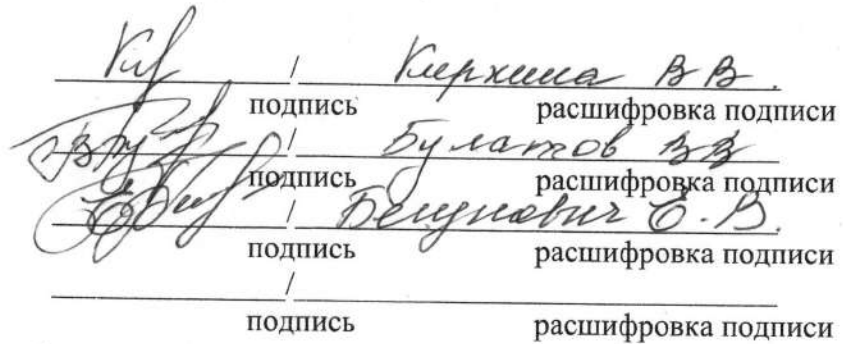 / Кирхина В В.
подпись расшифровка подписи
/ Булатов В В
подпись расшифровка подписи
/ Белунович Е. В.
подпись расшифровка подписи
/
подпись расшифровка подписи